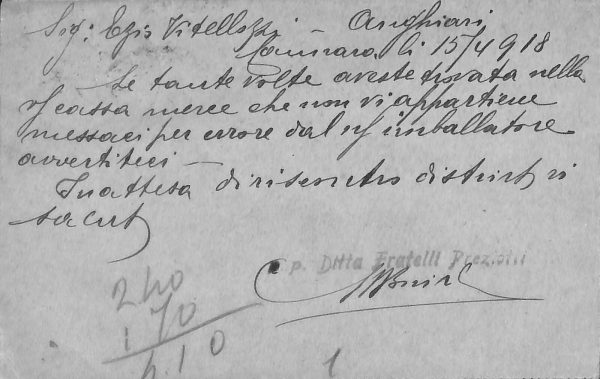 Sig: Ezio Vitellozzi – Anghiari
Cannara li 15/4 918
Se tante volte aveste trovata nella
vs/ cassa merce che non vi appartiene
messaci per errore dal ns/ imballatore
avvertiteci –
In attesa di riscontro distinti vi
salut
p. Ditta Fratelli Preziotti
240
170
410
1